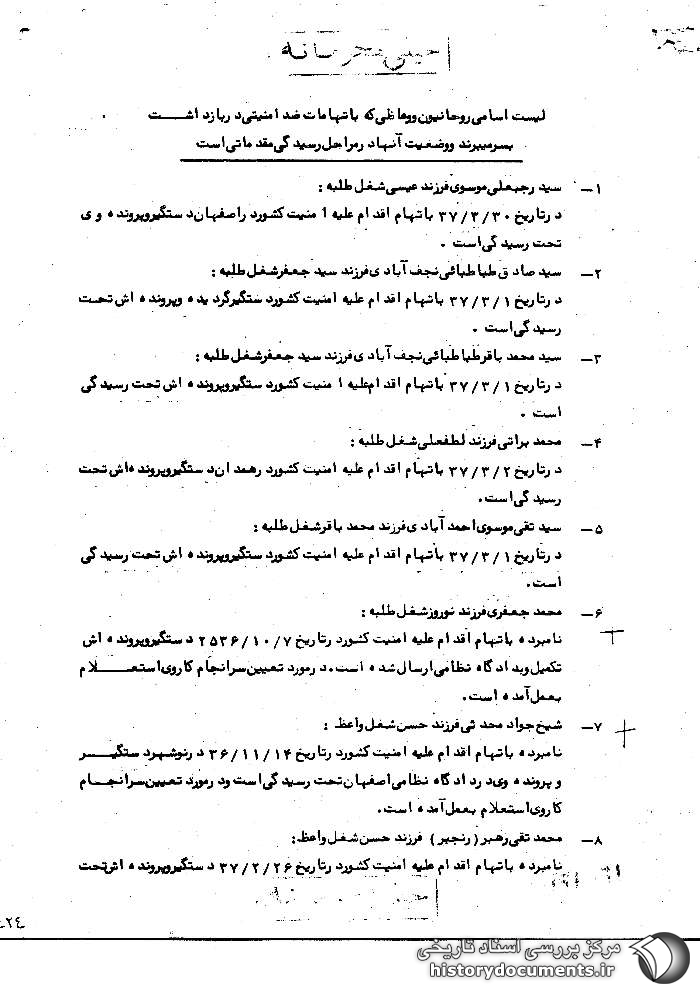 خیلی محرمانه
لیست اسامی روحانیون ووعاظی که باتهامات ضد امنیتی در بازداشت
بسرمیبرند ووضعیت آنها در مراحل رسیدگی مقدماتی است
۱- سید رجبعلی موسوی فرزند عیسی شغل طلبه :
در تاریخ ۳۷/۳/۳۰ باتهام اقدام علیه امنیت کشور در اصفهان دستگیر و پرونده وی
تحت رسیدگی است .
۲- سید صادق طباطبائی نجف آبادی فرزند سید جعفر شغل طلبه :
در تاریخ ۳۷/۳/۱ باتهام اقدام علیه امنیت کشور دستگیر گردیده و پرونده اش تحت
رسیدگی است .
۳- سید محمد باقر طباطبائی نجف آبادی فرزند سید جعفر شغل طلبه :
در تاریخ ۳۷/۳/۱ باتهام اقدام علیه امنیت کشور دستگیر و پرونده اش تحت رسیدگی
است .
۴- محمد براتی فرزند لطفعلی شغل طلبه :
در تاریخ ۳۷/۳/۲ باتهام اقدام علیه امنیت کشور در همدان دستگیر و پرونده اش تحت
رسیدگی است .
۵- سید تقی موسوی احمد آبادی فرزند محمد باقر شغل طلبه :
در تاریخ ۳۷/۳/۱ باتهام اقدام علیه امنیت کشور دستگیر و پرونده اش تحت رسیدگی
است .
۶- محمد جعفری فرزند نوروز شغل طلبه :
نامبرده باتهام اقدام علیه امنیت کشور در تاریخ ۲۵۳۶/۱۰/۷ دستگیر و پرونده اش
تکمیل و بدادگاه نظامی ارسال شده است . در مورد تعیین سرانجام کار وی استعلام
بعمل آمده است .
۷- شیخ جواد محدثی فرزند حسن شغل واعظ :
نامبرده باتهام اقدام علیه امنیت کشور در تاریخ ۳۶/۱۱/۱۴ در نوشهر دستگیر
و پرونده وی در دادگاه نظامی اصفهان تحت رسیدگی است و در مورد تعیین سرانجام
کار وی استعلام بعمل آمده است .
۸- محمد تقی رهبر ( رنجبر ) فرزند حسن شغل واعظ :
نامبرده باتهام اقدام علیه امنیت کشور در تاریخ ۳۷/۲/۲۶ دستگیر و پرونده اش تحت
۲۴
مرکز بررسی اسناد تاریخی
historydocuments.ir